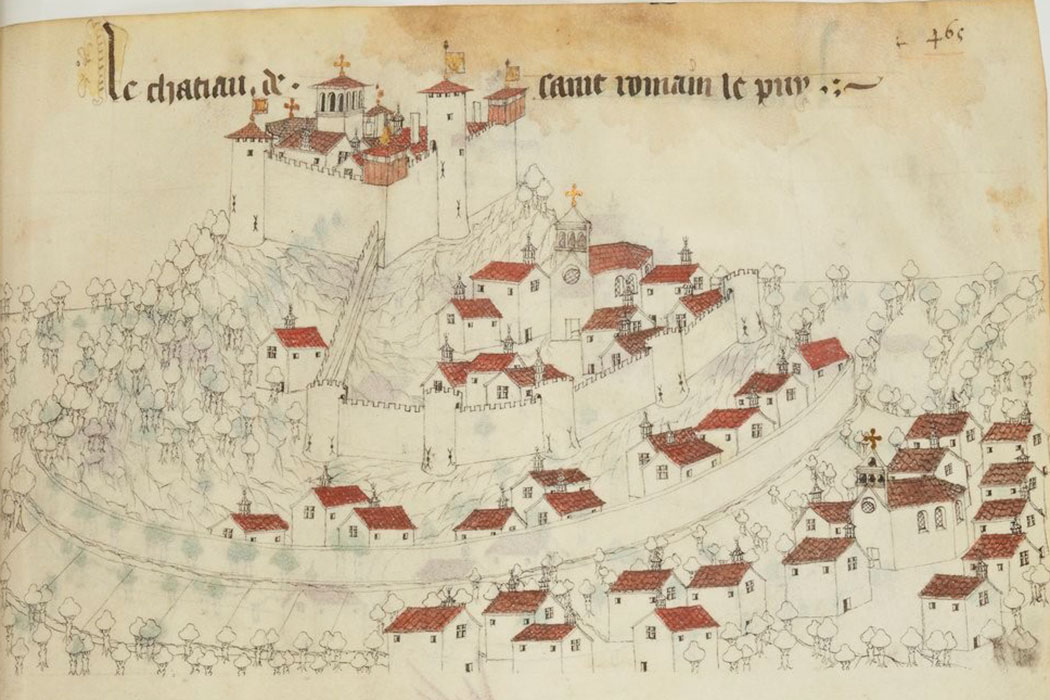 Le chatiau de saint romain le puy
465